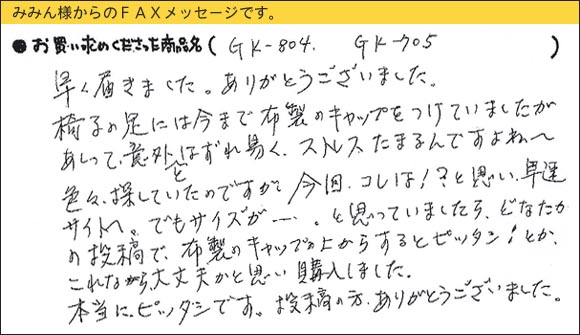 みみん様からのＦＡＸメッセージです。
● お買い求めくださった商品名 ( GK-804. GK-705 )
早く届きました。ありがとうございました。
椅子の足には今まで布製のキャップをつけていましたが
あしって、意外とはずれ易く、ストレスたまるんですよね〜
色々、探していたのですが、今回、コレは！？と思い、早速
サイトへ。でもサイズが…。と思っていましたら、どなたか
の投稿で、布製のキャップの上からするとピッタシ！とか、
これなから大丈夫かと思い購入しました。
本当に、ピッタシです。投稿の方、ありがとうございました。